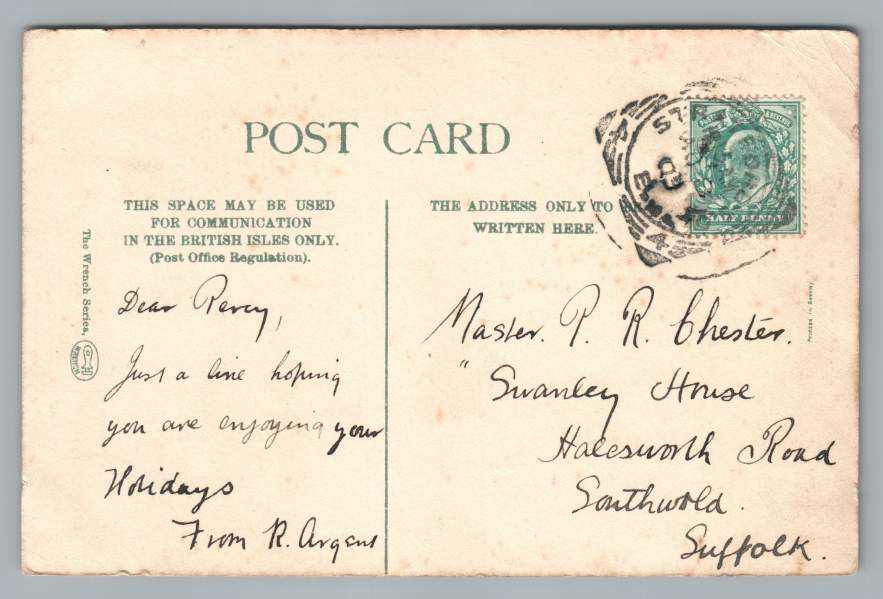 POST CARD
THIS SPACE MAY BE USED
FOR COMMUNICATION
IN THE BRITISH ISLES ONLY.
(Post Office Regulation).
THE ADDRESS ONLY TO
WRITTEN HERE.
The Wrench Series,
WRENCH
POSTAGE & REVENUE
HALF PENNY
STRATFORD
4
Printed in Saxony
Dear Percy,
Just a line hoping
you are enjoying your
Holidays
From R. Argent
Master. P. R. Chester.
" Swanley House
Halesworth Road
Southwold.
Suffolk.